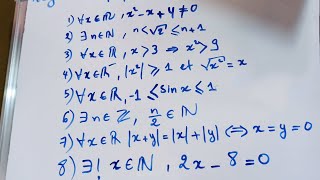 1) ∀x∈ℝ, x²-x+4≠0
2) ∃n∈ℕ, n≤√2≤n+1
3) ∀x∈ℝ, x>3 ⇒ x²>9
4) ∀x∈ℝ, |x²|≥1 et √x²=x
5) ∀x∈ℝ, -1≤sinx≤1
6) ∃n∈ℤ, n/2∈ℕ
7) ∀x∈ℝ |x+y|=|x|+|y| ⇔ x=y=0
8) ∃! x∈ℕ, 2x-8=0